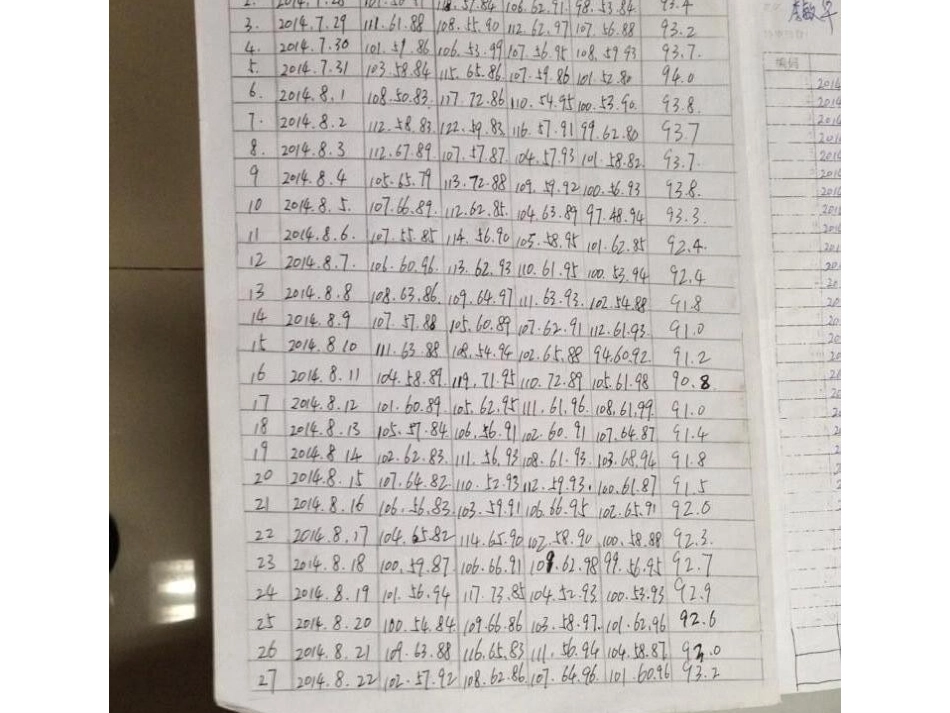 2. 2014.7.28 106.62.91 98.53.84 93.4
3. 2014.7.29 111.61.88 108.55.90 112.62.97 107.56.88 93.2
4. 2014.7.30 101.51.86 106.53.99 107.56.95 108.59.93 93.7.
5. 2014.7.31 103.58.84 115.65.86. 107.59.86 101.52.80 94.0
6. 2014.8.1 108.50.83. 117.72.86 110.54.95 100.53.90. 93.8.
7. 2014.8.2 112.58.83 122.59.83 116.57.91 99.62.80 93.7
8. 2014.8.3 112.67.89 107.57.87 104.57.93 101.58.82. 93.7.
9 2014.8.4 105.65.79 113.72.88 109.59.92 100.56.93 93.8.
10 2014.8.5. 107.66.89. 112.62.85. 104.63.89 97.48.94 93.3.
11 2014.8.6. 107.55.85 114.56.90 105.58.95 101.62.85 92.4.
12 2014.8.7. 106.60.96. 113.62.93 110.61.95 100.53.94 92.4
13 2014.8.8 108.63.86 109.64.97 111.63.93. 102.54.88 91.8
14 2014.8.9 107.57.88 105.60.89 107.62.91 112.61.93. 91.0
15 2014.8.10 111.63.88 108.54.94 102.65.88 94.60.92. 91.2
16 2014.8.11 104.58.89. 119.71.95 110.72.89 105.61.98 90.8
17 2014.8.12 101.60.89 105.62.95 111.61.96. 108.61.99. 91.0
18 2014.8.13 105.57.84 106.56.91 102.60.91 107.64.87 91.4
19 2014.8.14 102.62.83. 111.56.93 108.61.93. 103.68.94 91.8
20 2014.8.15 107.64.82 110.52.93 112.59.93. 100.61.87 91.5
21 2014.8.16 106.56.83 103.59.91 106.66.95 102.65.91 92.0
22 2014.8.17 104.65.82 114.65.90 102.58.90 100.58.88 92.3.
23 2014.8.18 100.59.87 106.66.91 109.62.98 99.56.95 92.7
24 2014.8.19 101.56.94 117.73.85 104.52.93 100.53.93 92.9
25 2014.8.20 100.54.84. 109.66.86 103.58.97. 101.62.96 92.6
26 2014.8.21 109.63.88 116.65.83 111.56.94 104.58.87 93.0
27 2014.8.22 102.57.92 108.62.86 107.64.96. 101.60.96 93.2
编码